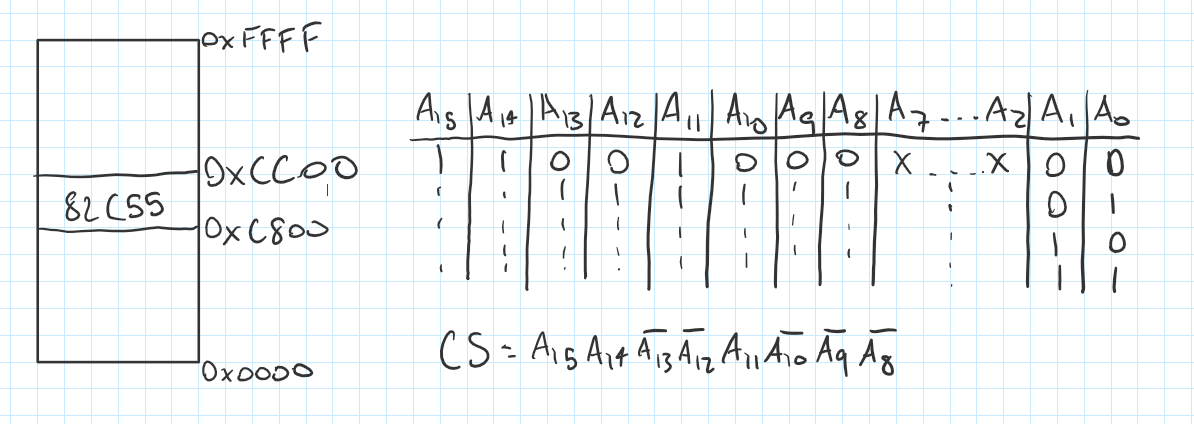 0xFFFF
0xCC00
82C55
0xC800
0x0000
A₁₅ A₁₄ A₁₃ A₁₂ A₁₁ A₁₀ A₉ A₈ A₇...A₂ A₁ A₀
1 1 0 0 1 0 0 0 X....X 0 0
0 1
1 0
1 1
CS = A₁₅ A₁₄ A̅₁₃ A̅₁₂ A₁₁ A̅₁₀ A̅₉ A̅₈